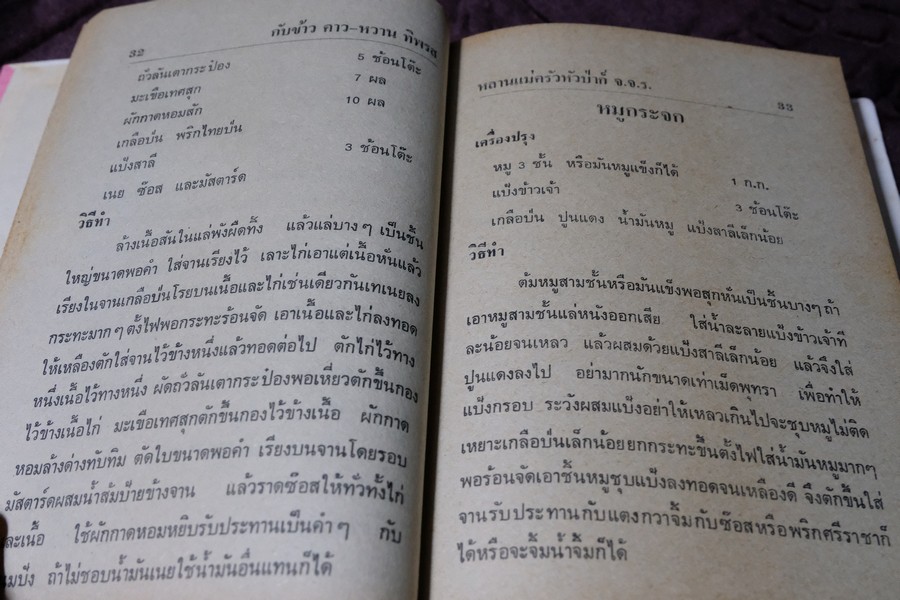 32
กับข้าว คาว-หวาน ทิพรส
ถั่วลันเตากระป๋อง 5 ช้อนโต๊ะ
มะเขือเทศสุก 7 ผล
ผักกาดหอมสัก 10 ผล
เกลือป่น พริกไทยป่น
แป้งสาลี 3 ช้อนโต๊ะ
เนย ซ๊อส และมัสตาร์ด
วิธีทำ
ล้างเนื้อสันในแล่พังผืดทิ้ง แล้วแล่บางๆ เป็นชิ้น
ใหญ่ขนาดพอคำ ใส่จานเรียงไว้ เลาะไก่เอาแต่เนื้อหั่นแล้ว
เรียงในจานเกลือป่นโรยบนเนื้อและไก่เช่นเดียวกันเทเนยลง
กระทะมากๆ ตั้งไฟพอกระทะร้อนจัด เอาเนื้อและไก่ลงทอด
ให้เหลืองตักใส่จานไว้ข้างหนึ่งแล้วทอดต่อไป ตักไก่ไว้ทาง
หนึ่งเนื้อไว้ทางหนึ่ง ผัดถั่วลันเตากระป๋องพอเหี่ยวตักขึ้นกอง
ไว้ข้างเนื้อไก่ มะเขือเทศสุกตักขึ้นกองไว้ข้างเนื้อ ผักกาด
หอมล้างด่างทับทิม ตัดใบขนาดพอคำ เรียงบนจานโดยรอบ
มัสตาร์ดผสมน้ำส้มป้ายข้างจาน แล้วราดซ๊อสให้ทั่วทั้งไก่
ละเนื้อ ใช้ผักกาดหอมหยิบรับประทานเป็นคำๆ กับ
มปัง ถ้าไม่ชอบน้ำมันเนยใช้น้ำมันอื่นแทนก็ได้
หลานแม่ครัวหัวป่าก์ จ.จ.ร. 33
หมูกระจก
เครื่องปรุง
หมู 3 ชั้น หรือมันหมูแข็งก็ได้ 1 ก.ก.
แป้งข้าวเจ้า 3 ช้อนโต๊ะ
เกลือป่น ปูนแดง น้ำมันหมู แป้งสาลีเล็กน้อย
วิธีทำ
ต้มหมูสามชั้นหรือมันแข็งพอสุกหั่นเป็นชิ้นบางๆ ถ้า
เอาหมูสามชั้นแล่หนังออกเสีย ใส่น้ำละลายแป้งข้าวเจ้าที
ละน้อยจนเหลว แล้วผสมด้วยแป้งสาลีเล็กน้อย แล้วจึงใส่
ปูนแดงลงไป อย่ามากนักขนาดเท่าเม็ดพุทรา เพื่อทำให้
แป้งกรอบ ระวังผสมแป้งอย่าให้เหลวเกินไปจะชุบหมูไม่ติด
เหยาะเกลือป่นเล็กน้อยยกกระทะขึ้นตั้งไฟใส่น้ำมันหมูมากๆ
พอร้อนจัดเอาชิ้นหมูชุบแป้งลงทอดจนเหลืองดี จึงตักขึ้นใส่
จานรับประทานกับแตงกวาจิ้มกับซ๊อสหรือพริกศรีราชาก็
ได้หรือจะจิ้มน้ำจิ้มก็ได้